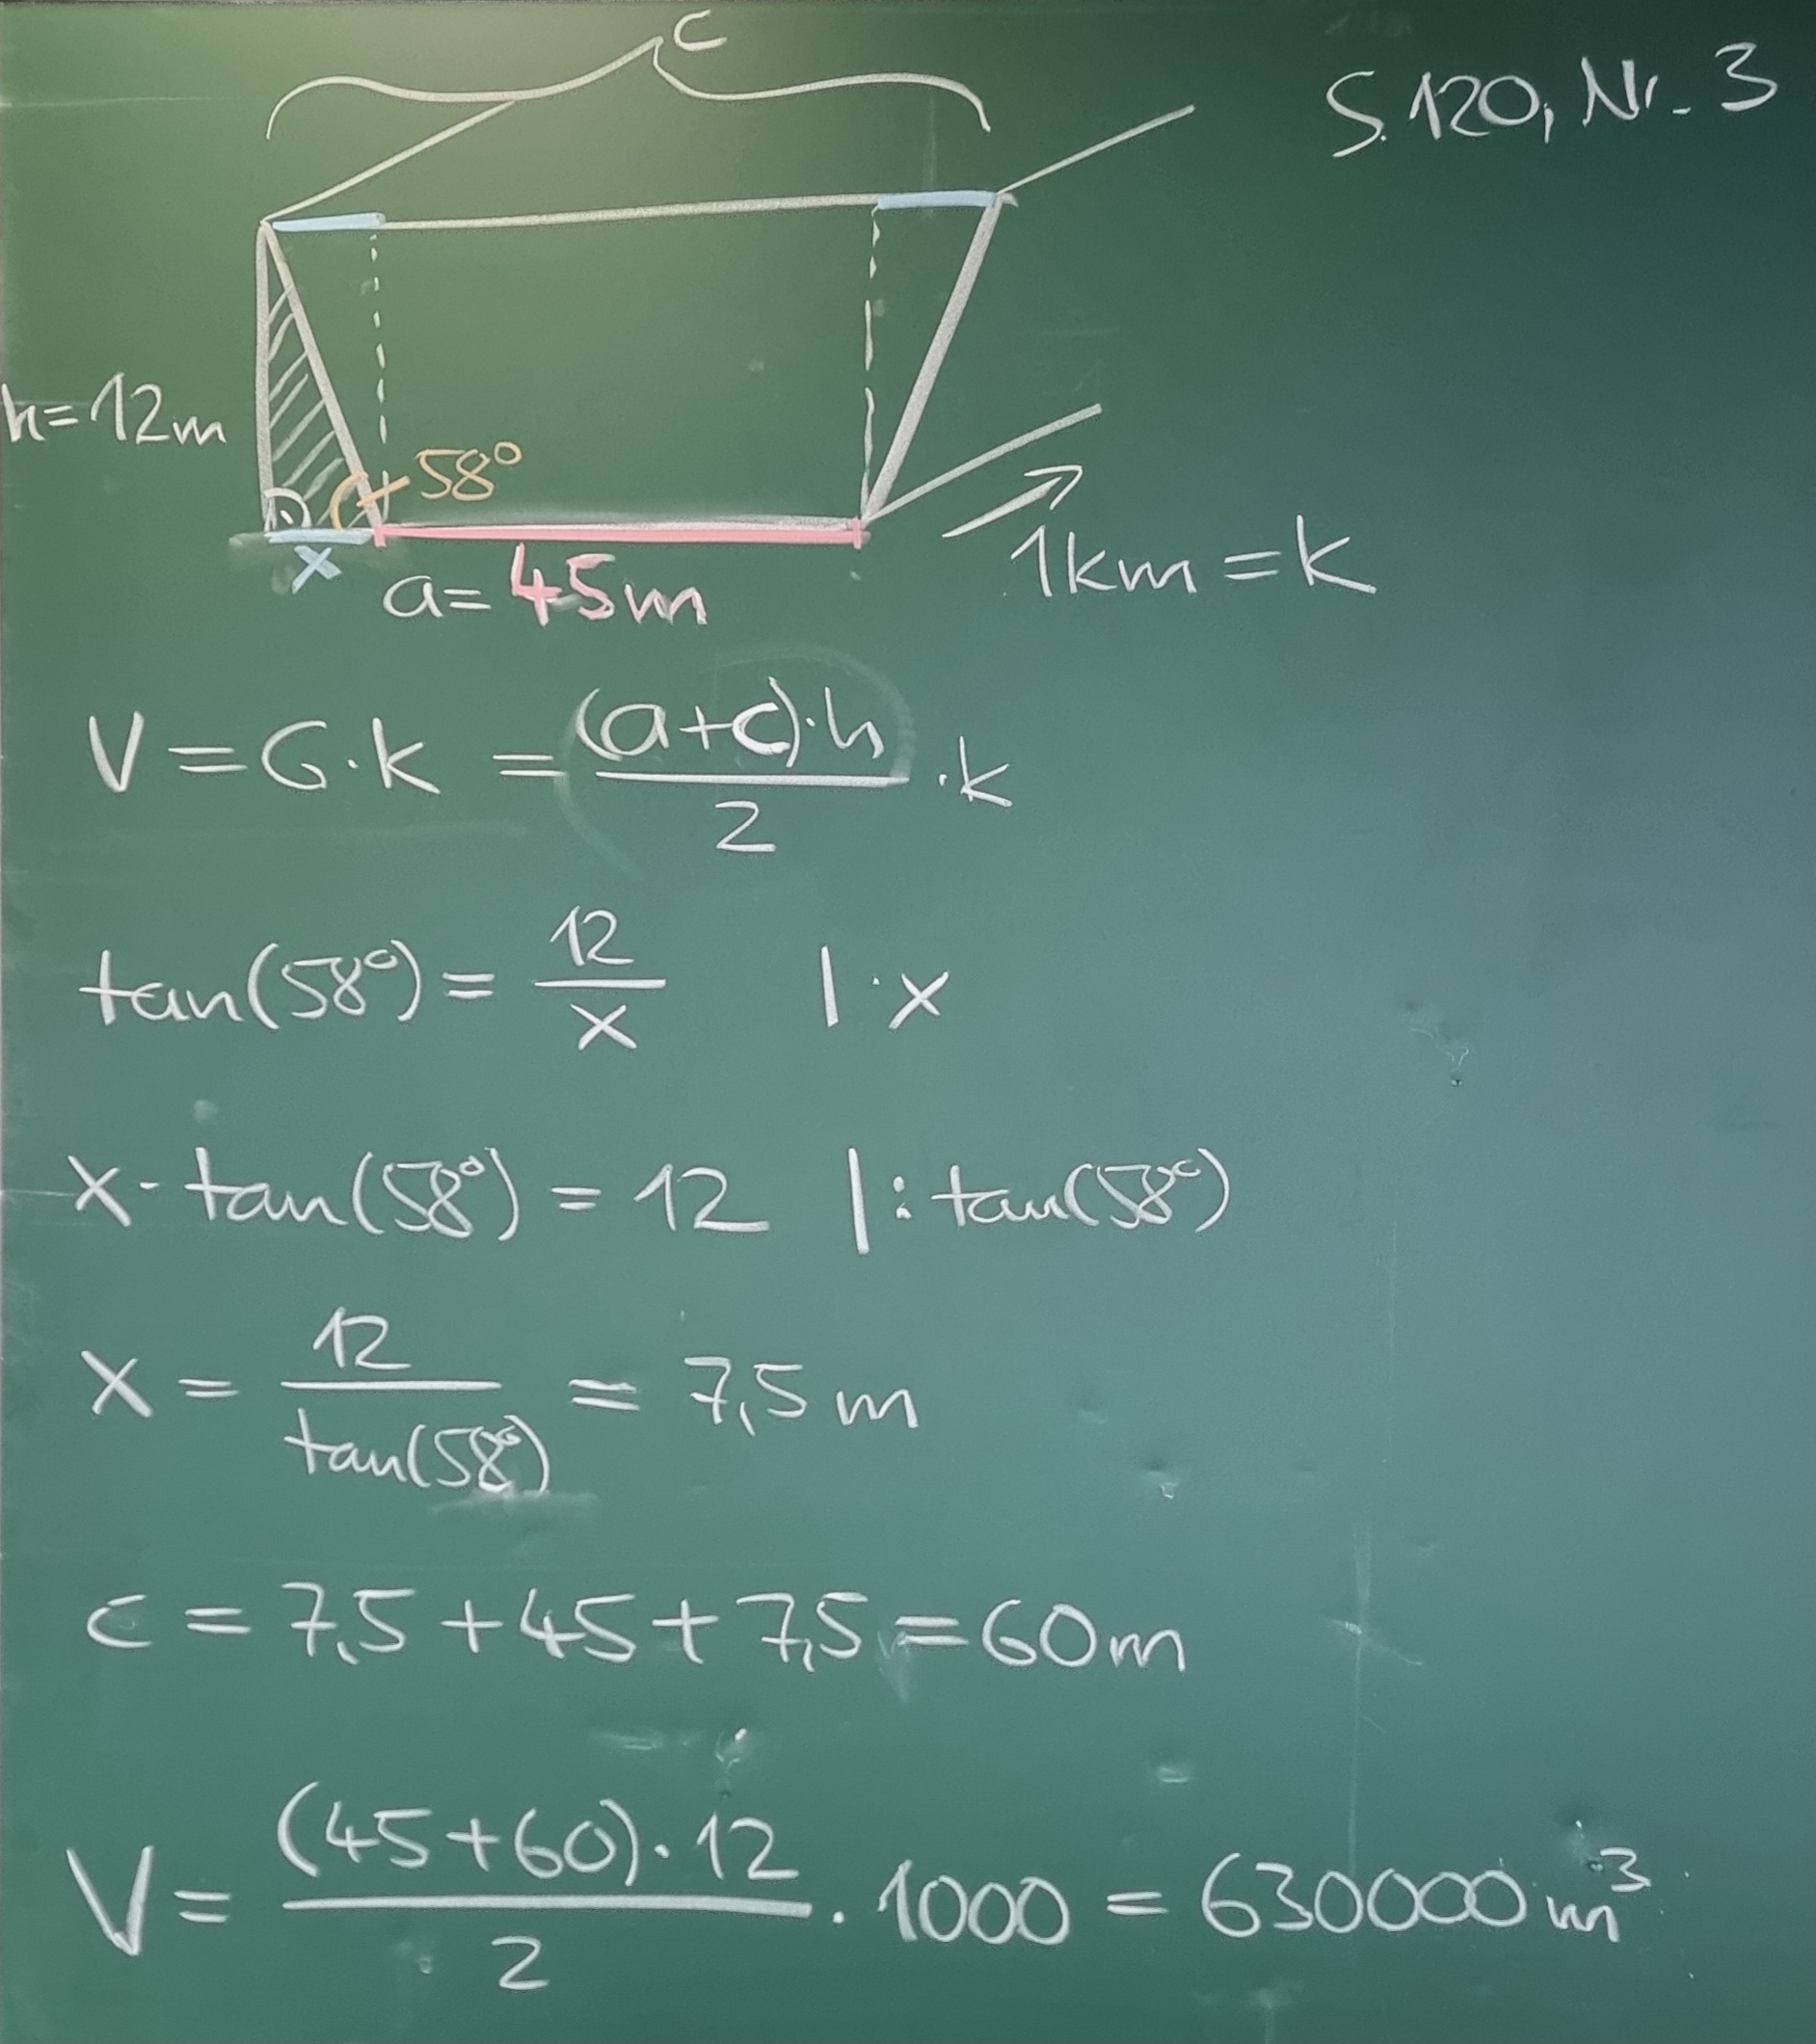 c
S. 120, Nr. 3
h = 12 m
58°
x
a = 45 m
1 km = k
V = G · k = (a+c) · h / 2 · k
tan(58°) = 12 / x | · x
x · tan(58°) = 12 | : tan(58°)
x = 12 / tan(58°) = 7,5 m
c = 7,5 + 45 + 7,5 = 60 m
V = (45+60) · 12 / 2 · 1000 = 630000 m³